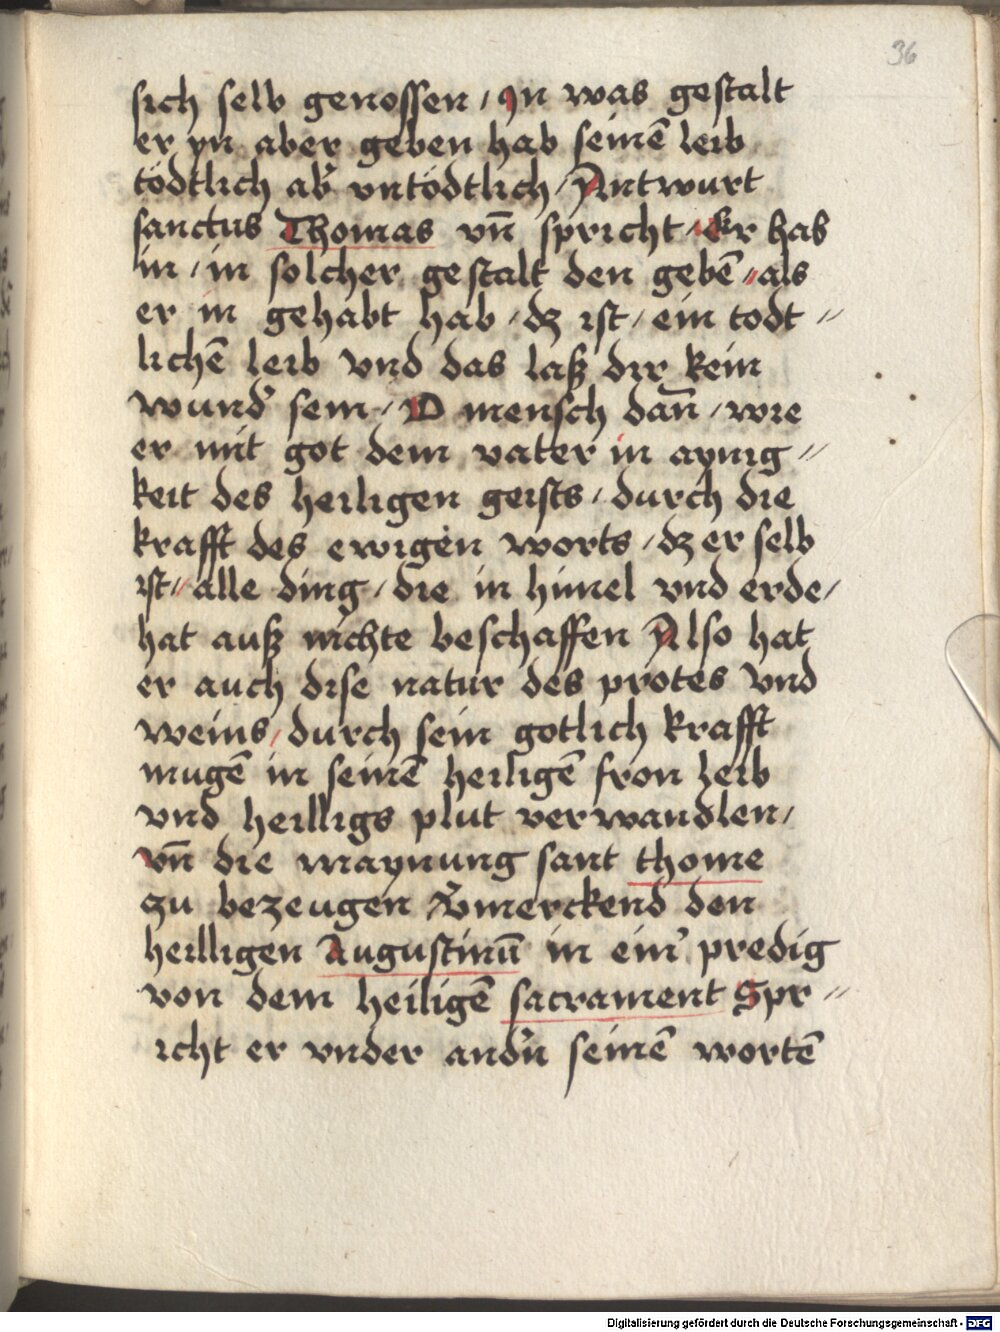 36
sich selb genossen / In was gestalt
er yn aber geben hab seinē leib
tödtlich ab̕ vntödtlich / Antwurt
sanctus Thomas vn̄ spricht / Er hab
in / in solcher gestalt den gebē // als
er in gehabt hab / dz ist / ein todt //
lichē leib vnd das laß dir kein
wund̕ sein / O mensch dan̄ / wie
er mit got dem vater in aynig //
keit des heiligen geists / durch die
krafft des ewigen worts / dz er selb
ist // alle ding / die in himel vnd erde /
hat auß nichte beschaffen Also hat
er auch dise natur des protes vnd
weins / durch sein gotlich krafft
mugē in seinē heiligē fron leib
vnd heilligs plut verwandlen /
vn̄ die maynung sant thome
zu bezeugen v̕merckend den
heilligen Augustinū in ein̕ predig
von dem heiligē sacrament Spr //
icht er vnder and̕n seinē wortē
Digitalisierung gefördert durch die Deutsche Forschungsgemeinschaft - DFG